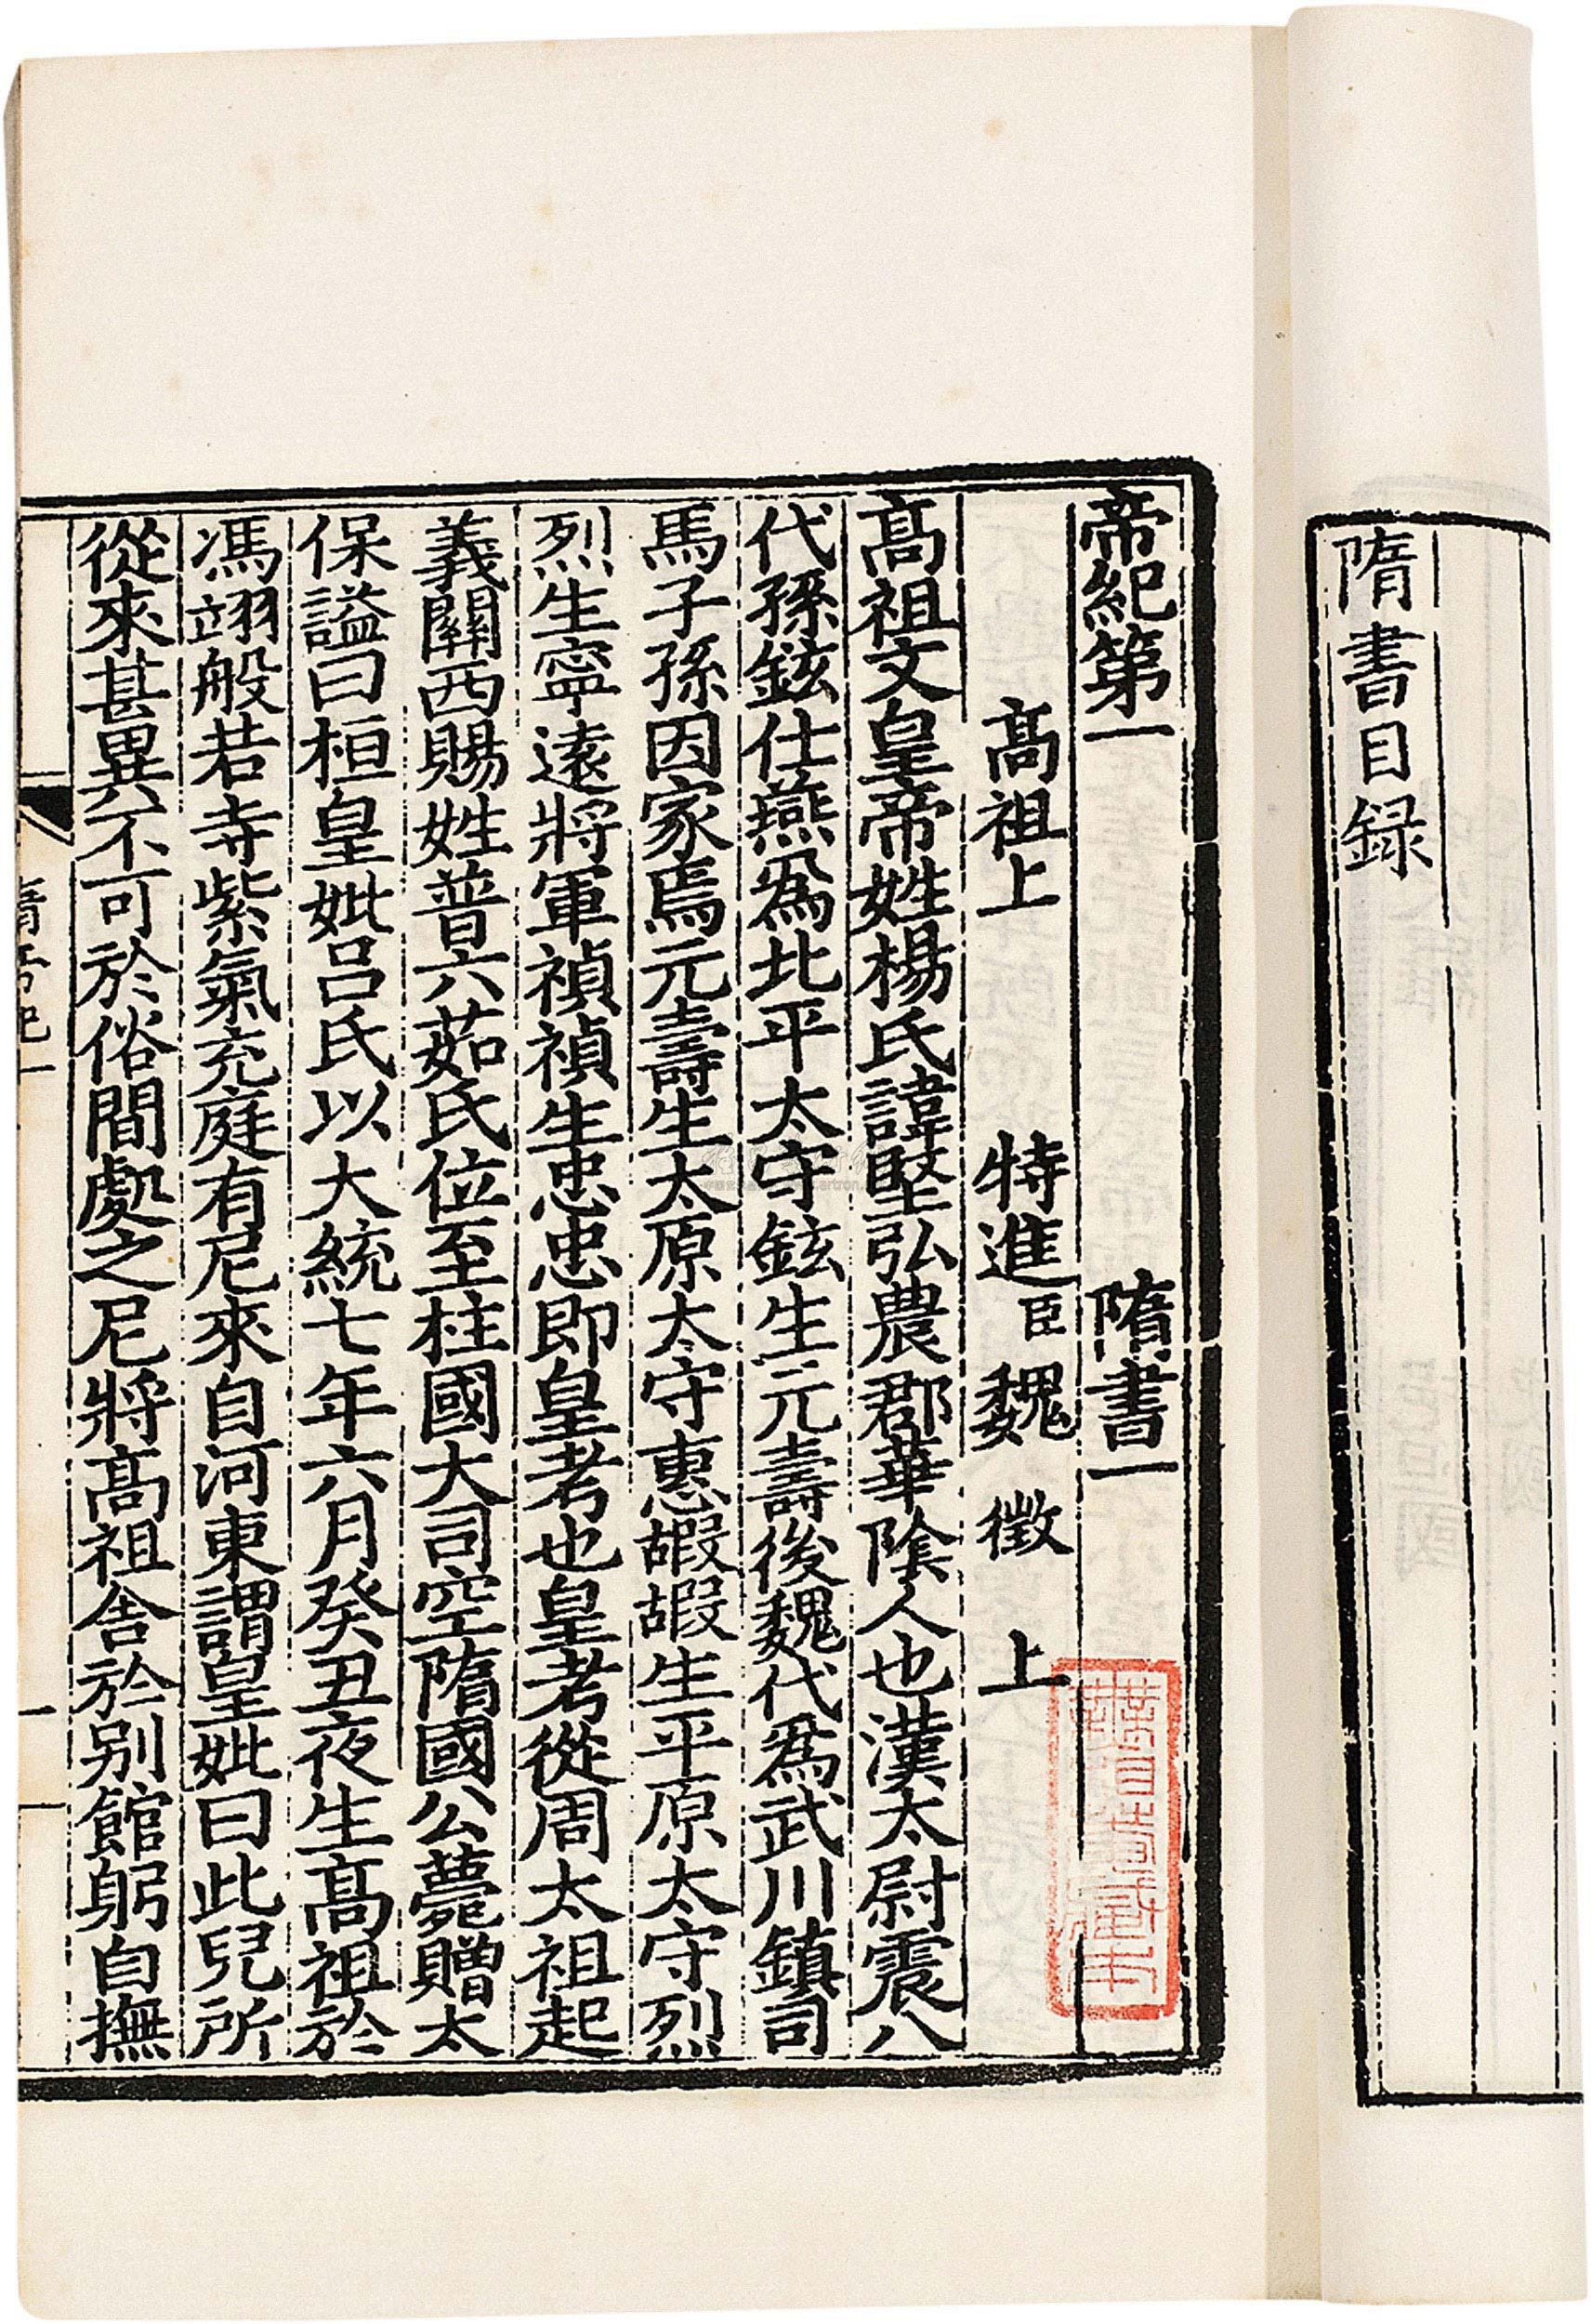 隋書目録
帝紀第一 隋書一
髙祖上 特進臣魏徵上
髙祖文皇帝姓楊氏諱堅弘農郡華陰人也漢太尉震八
代孫鉉仕燕爲北平太守鉉生元壽後魏代爲武川鎮司
馬子孫因家焉元壽生太原太守惠嘏嘏生平原太守烈
烈生寧遠將軍禎禎生忠忠即皇考也皇考從周太祖起
義關西賜姓普六茹氏位至柱國大司空隋國公薨贈太
保謚曰桓皇妣吕氏以大統七年六月癸丑夜生髙祖於
馮翊般若寺紫氣充庭有尼來自河東謂皇妣曰此兒所
從來甚異不可於俗間處之尼將髙祖舎於别館躬自撫